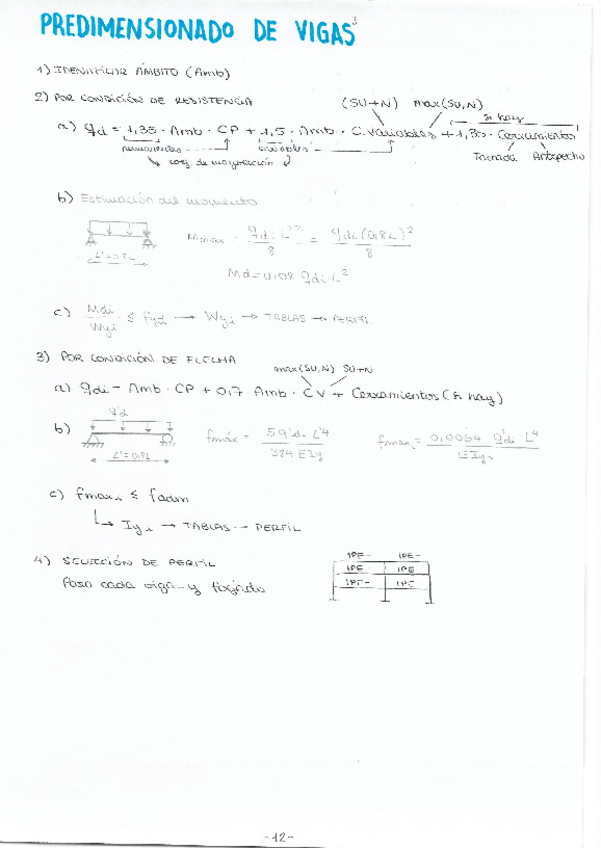 PREDIMENSIONADO DE VIGAS
1) IDENTIFICAR ÁMBITO (Amb)
2) POR CONDICIÓN DE RESISTENCIA
(SU+N) max(SU,N)
Si hay
a) qdi = 1,35 · Amb · CP + 1,5 · Amb · C.Variables + 1,35 · Cerramientos
permanentes variables
coef. de mayoración
Fachada Antepecho
b) Estimación del momento
Mmax = qdi L'² / 8 = qdi (0,8L)² / 8
L' = 0,8L
Md = 0,08 qdi L²
c) Mdi / Wyi ≤ fyd → Wyi → TABLAS → PERFIL
3) POR CONDICIÓN DE FLECHA
max(SU,N) SU+N
a) qdi = Amb · CP + 0,7 Amb · CV + Cerramientos (Si hay)
q'd
b) fmáx = 5 q'di L'4 / 384 EIy fmaxi = 0,0054 q'di L4 / EIyi
L' = 0,8L
c) fmaxi ≤ fadm
Iyi → TABLAS → PERFIL
4) SELECCIÓN DE PERFIL
Para cada viga y forjado
IPE- IPE-
IPE IPE
IPE- IPE
-12-